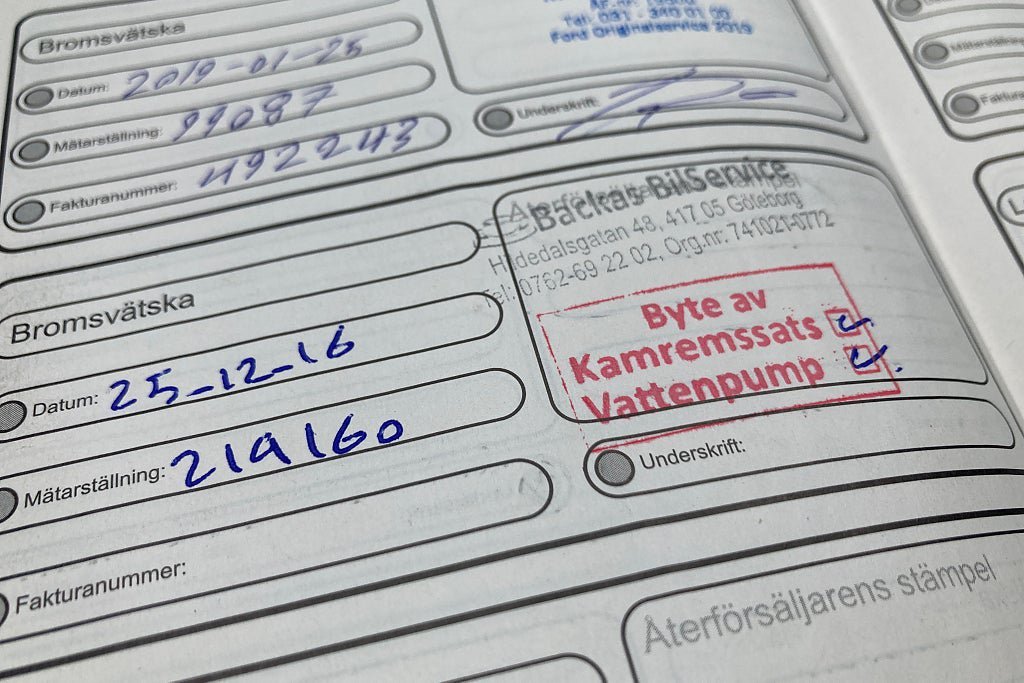 Bromsvätska
Datum: 2019-01-25
Mätarställning: 99087
Fakturanummer: 492243
Tel: 031 - 340 01 00
Ford Originalservice 2019
Underskrift:
Bromsvätska
Datum: 25-12-16
Mätarställning: 219160
Fakturanummer:
Återförsäljarens stämpel
Backas BilService
Hildedalsgatan 48, 417 05 Göteborg
Tel: 0762-69 22 02, Org.nr: 741021-0772
Byte av
Kamremssats
Vattenpump
Underskrift:
Återförsäljarens stämpel